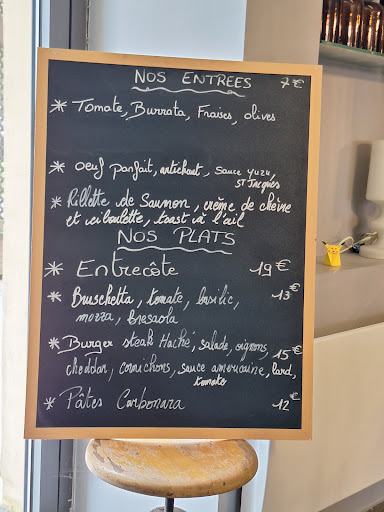 NOS ENTREES 7€
* Tomate, Burrata, Fraises, olives
* oeuf parfait, artichaut, sauce yuzu,
ST Jacques
* Rillette de Saumon, crème de chèvre
et ciboulette, toast à l'ail
NOS PLATS
* Entrecôte 19€
* Bruschetta, tomate, basilic, 13€
mozza, bresaola
* Burger steak Haché, salade, oignons, 15€
cheddar, cornichons, sauce americaine, lard,
tomato
* Pâtes Carbonara 12€